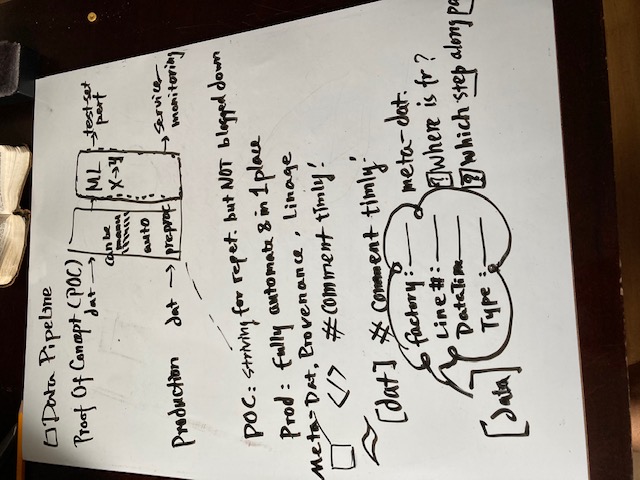 □ Data Pipeline
Proof Of Concept (POC)
dat →
can be
manu
auto
preproc
ML
X→y
→ test-set
perf
Production dat →
→ service
monitoring
POC: striving for repet. but NOT blogged down
Prod: fully automate & in 1 place
Meta-Dat, Provenance, Linage
</> # comment timly!
[dat] # comment timly!
factory: ___
Line#: ___
DataTim ___
Type: ___
[data]
meta-dat.
? Where is fr?
? which step along pa